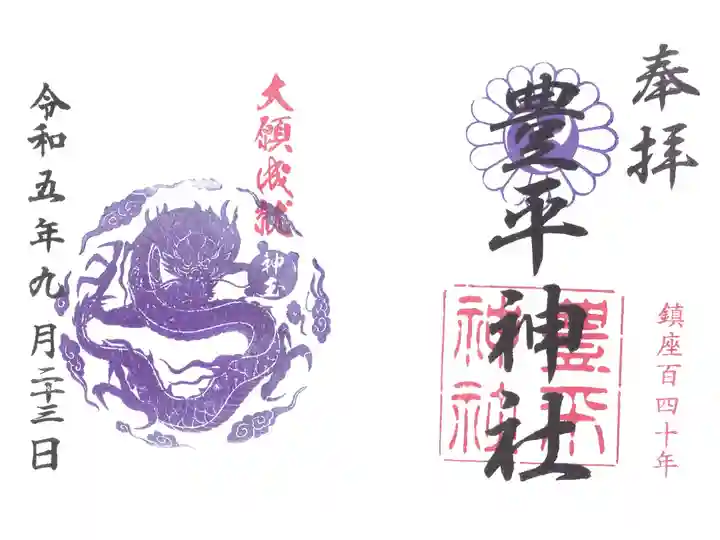 奉拝
豊平神社
豊平
神社
鎮座百四十年
大願成就
神玉
令和五年九月二十三日